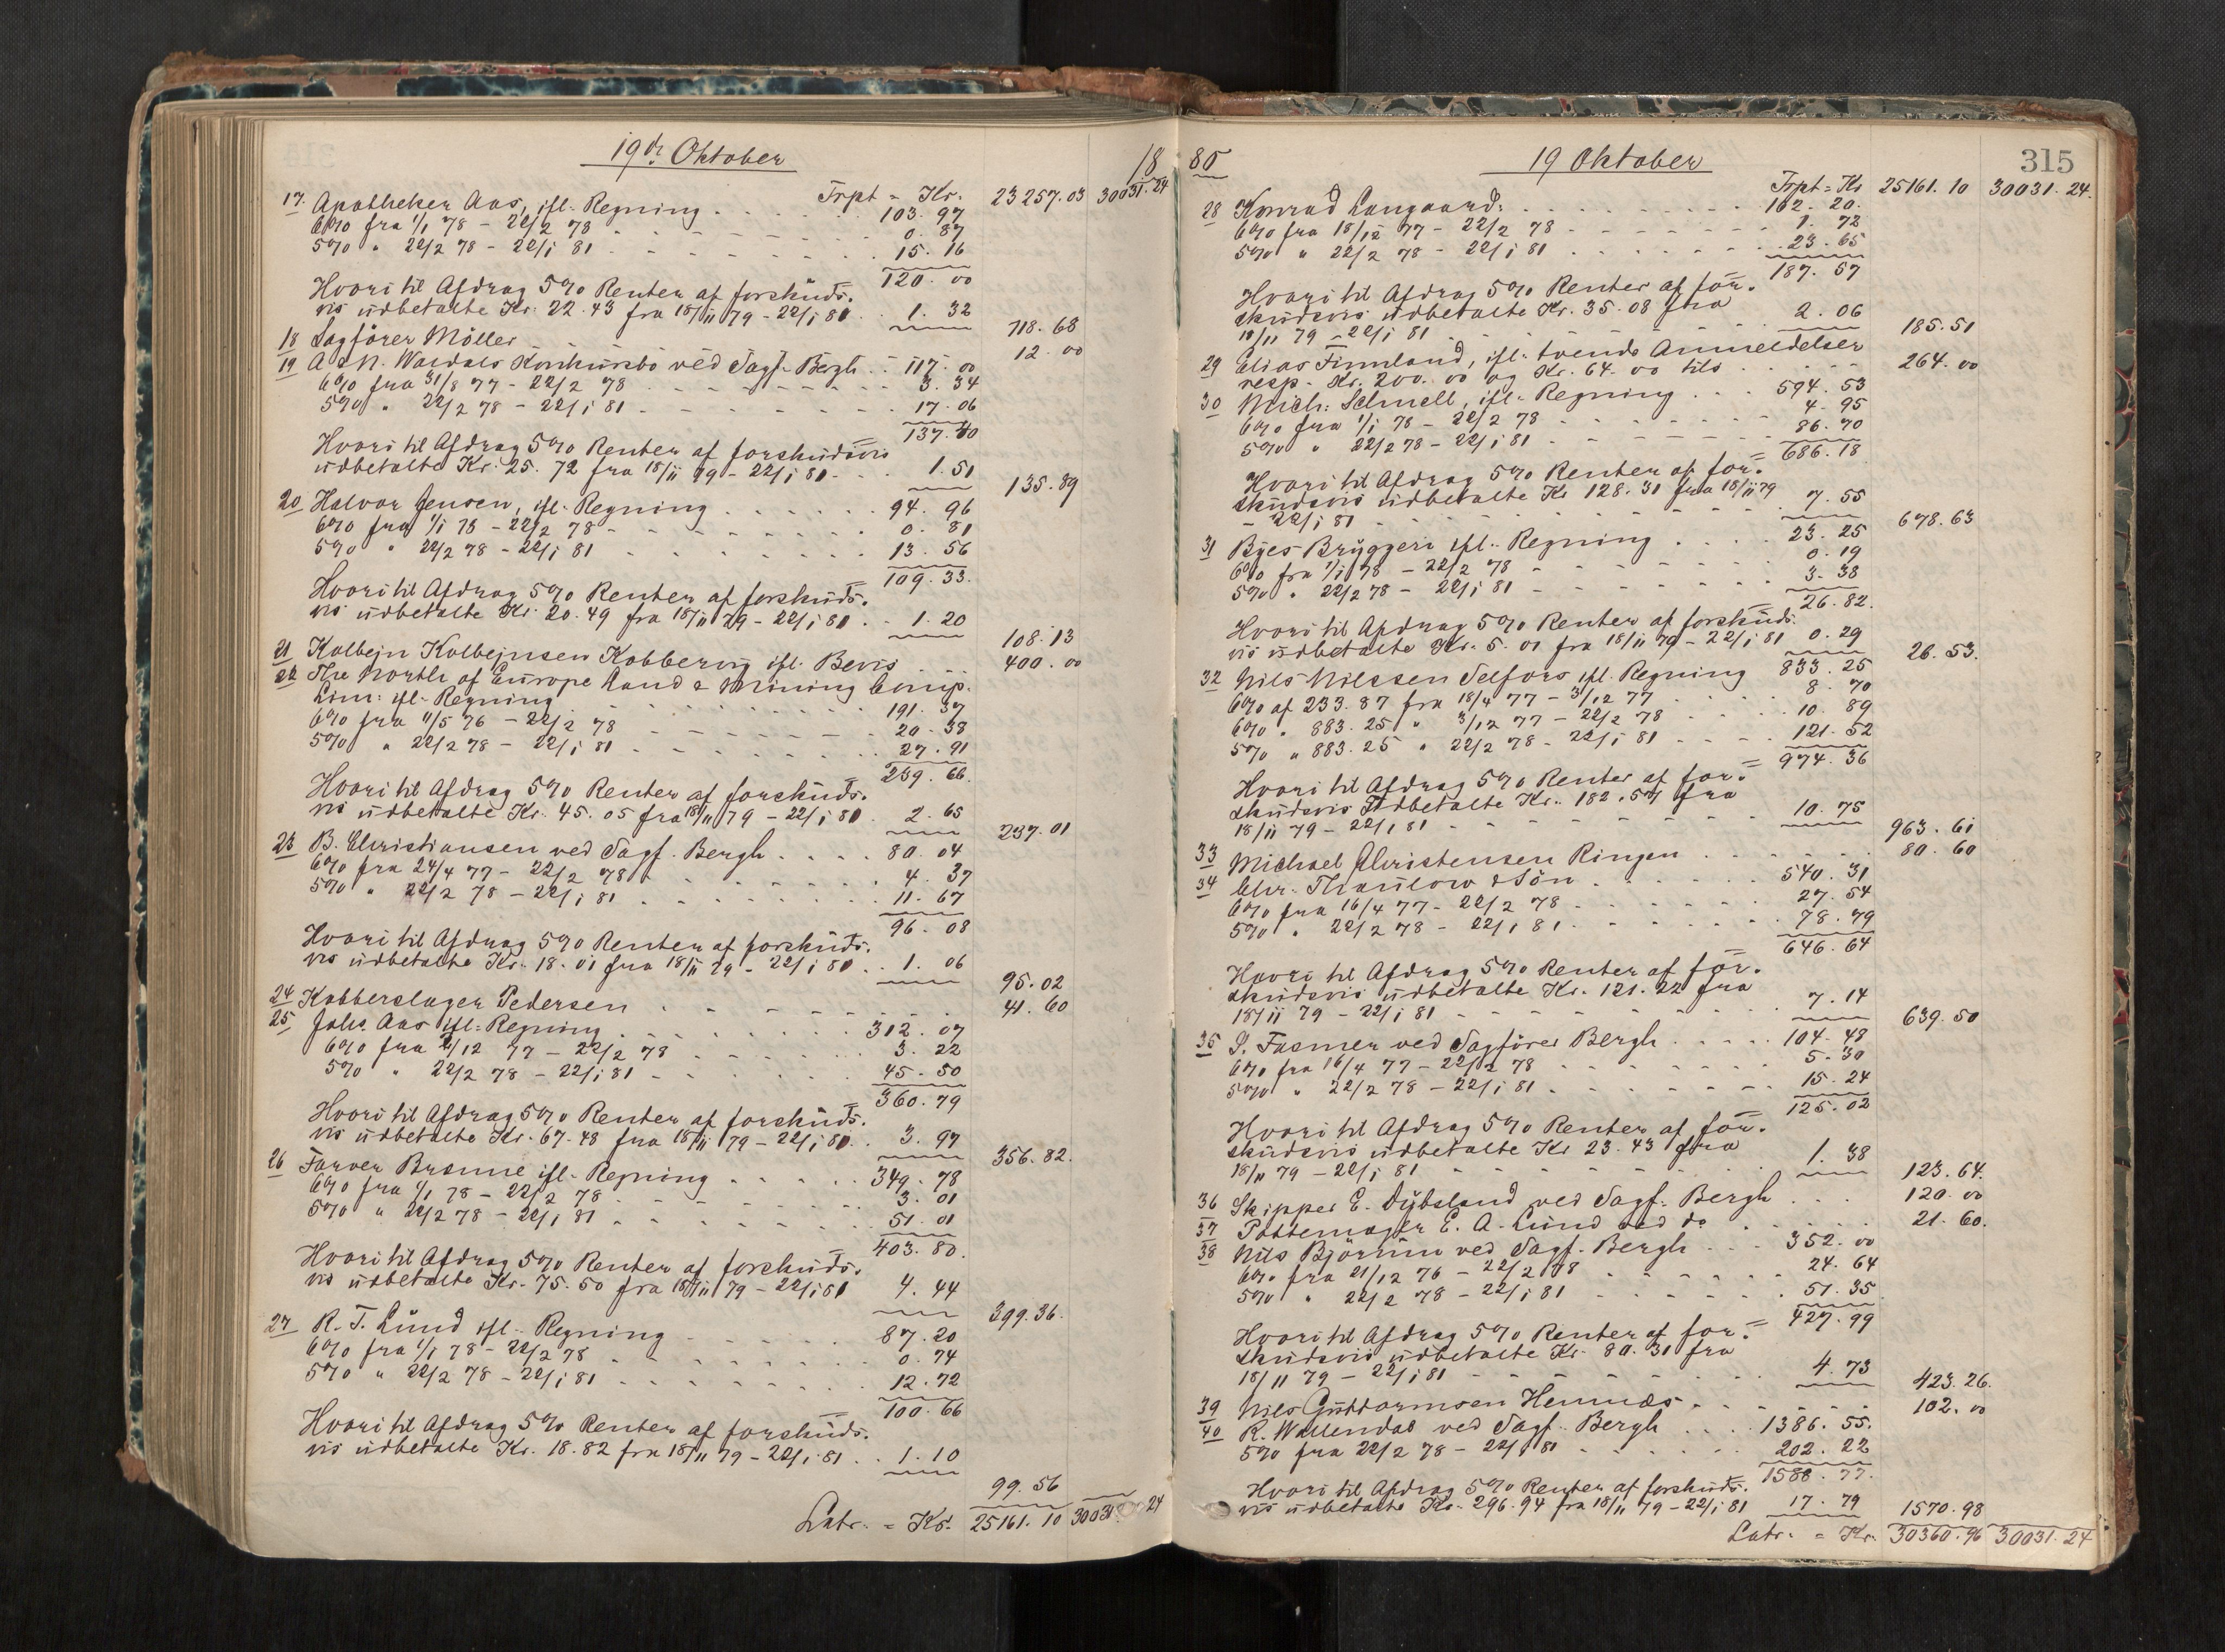 19de Oktober 18
Trpt = Kr. 23257.03 30031.24
17. Apotheker Aas, ifl. Regning . . . 103. 97
6% fra 1/1 78 - 22/2 78 - - - 0. 87
5% " 22/2 78 - 22/1 81 . - - - 15. 16
= 120. 00
Hvori til Afdrag 5% Renter af forskuds-
vis udbetalte Kr. 22.43 fra 18/11 79 - 22/1 81 . . 1. 32
118. 68
18 Sagförer Möller - - - 12. 00
19 A & N. Waldals Konkursbo ved Sagf. Bergh . . 117. 00
6% fra 31/8 77 - 22/2 78 . - - - 3. 34
5% " 22/2 78 - 22/1 81 . - - - 17. 06
= 137. 40
Hvori til Afdrag 5% Renter af forskudsvis
udbetalte Kr. 25.72 fra 18/11 79 - 22/1 81 - . . 1. 51
135. 89
20 Halvor Jensen, ifl. Regning . . . . . 94. 96
6% fra 1/1 78 - 22/2 78 - - - 0. 81
5% " 22/2 78 - 22/1 81 . - - - 13. 56
= 109. 33.
Hvori til Afdrag 5% Renter af forskuds-
vis udbetalte Kr. 20.49 fra 18/11 79 - 22/1 81 . . 1. 20
108. 13
21 Kolbejn Kolbejnsen Kobbervig ifl. Bevis . - . 400. 00
22 The North of Europe Land & Mining Comp.
Lim: ifl. Regning . - - - 191. 37
6% fra 11/5 76 - 22/2 78 - - - 20. 38
5% " 22/2 78 - 22/1 81 - - - 27. 91
239. 66.
Hvori til Afdrag 5% Renter af forskuds-
vis udbetalte Kr. 45.05 fra 18/11 79 - 22/1 81 . 2. 65
237. 01
23 B. Christiansen ved Sagf. Bergh . . . . 80. 04
6% fra 24/4 77 - 22/2 78 - - - 4. 37
5% " 22/2 78 - 22/1 81 . . . . 11. 67
96. 08
Hvori til Afdrag 5% Renter af forskuds-
vis udbetalte Kr. 18.01 fra 18/11 79 - 22/1 81 . . 1. 06
95. 02
24 Kobberslager Pedersen . - - - 41. 60
25 Johs. Aas ifl. Regning . - - - 312. 07
6% fra /12 77 - 22/2 78 . . . . 3. 22
5% " 22/2 78 - 22/1 81 - - - 45. 50
= 360. 79
Hvori til Afdrag 5% Renter af forskuds-
vis udbetalte Kr. 67.48 fra 18/11 79 - 22/1 81 . . 3. 97
356. 82.
26 Farver Brænne ifl. Regning . . . . . 349. 78
6% fra 1/1 78 - 22/2 78 . - - - 3. 01
5% " 22/2 78 - 22/1 81 . . . . 51. 01
= 403. 80.
Hvori til Afdrag 5% Renter af forskuds-
vis udbetalte Kr. 75.50 fra 18/11 79 - 22/1 81 4. 44
399. 36.
27 R. T. Lund ifl. Regning . - - - 87. 20
6% fra 1/1 78 - 22/2 78 . . . . 0. 74
5% " 22/2 78 - 22/1 81 . - - - 12. 72
= 100. 66
Hvori til Afdrag 5% Renter af forskuds-
vis udbetalte Kr. 18.82 fra 18/11 79 - 22/1 81 . . 1. 10
99. 56
Latr. = Kr. 25161. 10 30031. 24
80 19 Oktober 315
Trpt = Kr 25161. 10 30031. 24.
28 Konrad Langaard. . . . . . 162. 20.
6% fra 18/12 77 - 22/2 78 - - - 1. 72
5% " 22/2 78 - 22/1 81 . . . . 23. 65
= 187. 57
Hvori til Afdrag 5% Renter af for-
skudsvis udbetalte Kr. 35.08 fra
18/11 79 - 22/1 81 . - - - 2. 06
185. 51
29 Elias Finnland, ifl. tvende Anmeldelser
resp. Kr. 200. 00 og Kr. 64. 00 tils . . . . . 264. 00
30 Mich. Schnell, ifl. Regning . . . 594. 53
6% fra 1/1 78 - 22/2 78 - - - 4. 95
5% " 22/2 78 - 22/1 81 - - - 86. 70
= 686. 18
Hvori til Afdrag 5% Renter af for-
skudsvis udbetalte Kr 128. 31 fra 18/11 79
- 22/1 81 - - - 7. 55
678. 63
31 Byes Bryggeri ifl. Regning . . . . 23. 25
6% fra 1/1 78 - 22/2 78 - - - 0. 19
5% " 22/2 78 - 22/1 81 - - - 3. 38
= 26. 82.
Hvori til Afdrag 5% Renter af forskuds-
vis udbetalte Kr. 5. 01 fra 18/11 79 - 22/1 81 0. 29
26. 53.
32 Nils Nilssen Selfors ifl. Regning 833. 25
6% af 233. 87 fra 18/4 77 - 3/12 77 . . . 8. 70
6% " 883. 25 " 3/12 77 - 22/2 78 . . . 10. 89
5% " 883. 25 " 22/2 78 - 22/1 81 - - - 121. 52
= 974. 36
Hvori til Afdrag 5% Renter af for-
skudsvis udbetalte Kr. 182. 57 fra
18/11 79 - 22/1 81 - - - 10. 75
963. 61
33 Michael Christensen Ringen . - - - 80. 60
34 Chr. Thaulow & Sön . - - - 540. 31
6% fra 16/4 77 - 22/2 78 . . . . 27. 54
5% " 22/2 78 - 22/1 81 . . . . 78. 79
= 646. 64
Hvori til Afdrag 5% Renter af for-
skudsvis udbetalte Kr. 121. 22 fra
18/11 79 - 22/1 81 - - - 7. 14
639. 50
35 S. Fasmer ved Sagförer Bergh . . . . . 104. 48
6% fra 16/4 77 - 22/2 78 . . . . 5. 30
5% " 22/2 78 - 22/1 81 . - - - 15. 24
= 125. 02
Hvori til Afdrag 5% Renter af for-
skudsvis udbetalte Kr 23. 43 fra
18/11 79 - 22/1 81 - - - 1. 38
123. 64.
36 Skipper E. Dybsland ved Sagf. Bergh . . . 120. 00
37 Pottemager E. A. Lund ved do . . . . . 21. 60.
38 Nils Björnum ved Sagf. Bergh . . . 352. 00
6% fra 21/12 76 - 22/2 78 . - - - 24. 64
5% " 22/2 78 - 22/1 81 - - - 51. 35
= 427. 99
Hvori til Afdrag 5% Renter af for-
skudsvis udbetalte Kr. 80. 31 fra
18/11 79 - 22/1 81 - - - 4. 73
423. 26.
39 Nils Guttormsen Hennæs . . - - - 102. 00
40 R. Wallendal ved Sagf. Bergh . . . . 1386. 55.
5% fra 22/2 78 - 22/1 81 . - - - 202. 22
= 1588. 77.
Hvori til Afdrag 5% Renter af forskuds-
vis udbetalte Kr. 296. 94 fra 18/11 79 - 22/1 81 17. 79
1570. 98
Latr. = Kr. 30360. 96 30031. 24